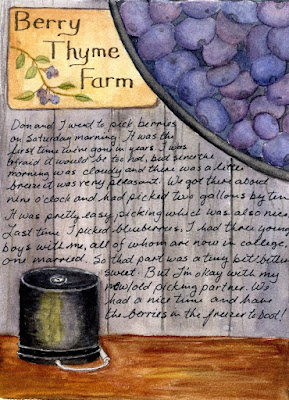 Berry
Thyme
Farm
Don and I went to pick berries
on Saturday morning. It was the
first time we've gone in years. I was
afraid it would be too hot, but since the
morning was cloudy and there was a little
breeze it was very pleasant. We got there about
nine o'clock and had picked two gallons by ten.
It was pretty easy picking which was also nice.
Last time I picked blueberries, I had three young
boys with me, all of whom are now in college,
one married. So that part was a tiny bit bitter
sweet. But I'm okay with my
new/old picking partner. We
had a nice time and have
the berries in the freezer to boot!